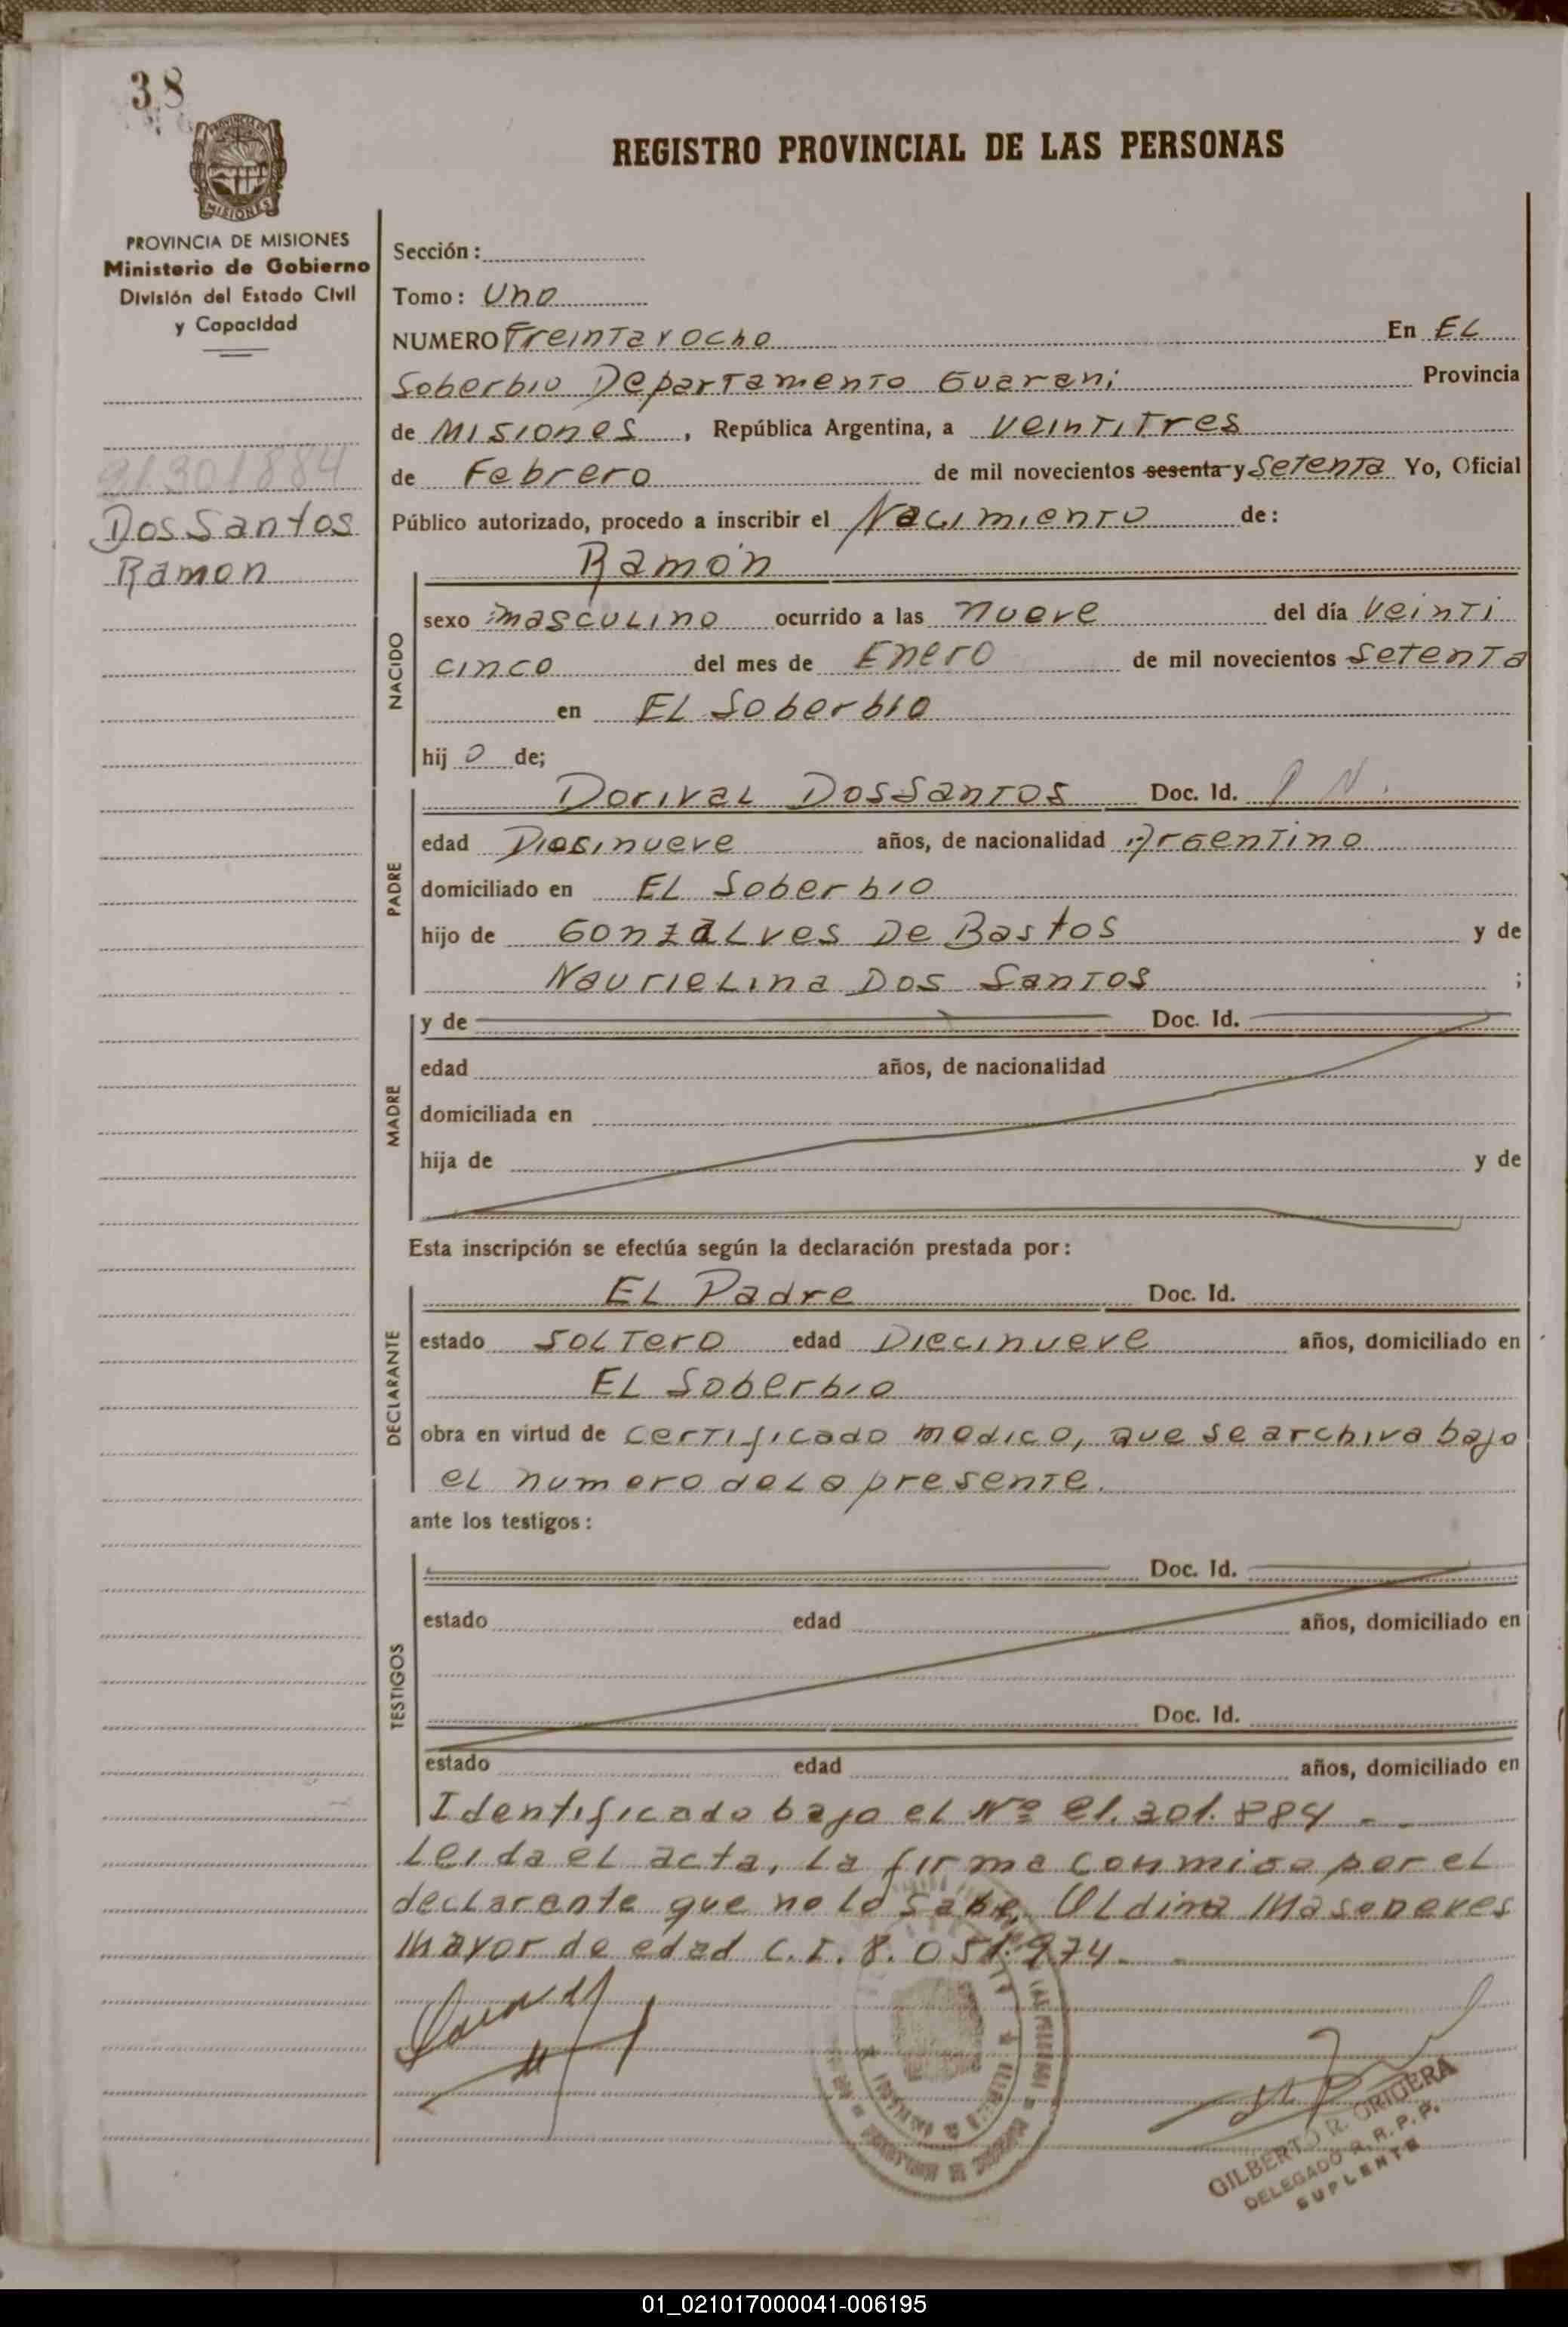 38
PROVINCIA DE MISIONES
REGISTRO PROVINCIAL DE LAS PERSONAS
PROVINCIA DE MISIONES
Ministerio de Gobierno
División del Estado Civil
y Capacidad
21301884
Dos Santos
Ramon
Sección:
Tomo: Uno
NUMERO Treinta y ocho En EL
Soberbio Departamento Guarani Provincia
de Misiones, República Argentina, a Veintitres
de Febrero de mil novecientos sesenta y Setenta Yo, Oficial
Público autorizado, procedo a inscribir el Nacimiento de:
Ramón
NACIDO
sexo masculino ocurrido a las nueve del día Veinti
cinco del mes de Enero de mil novecientos Setenta
en EL Soberbio
hijo de;
PADRE
Dorival Dos Santos Doc. Id. P N.
edad Diecinueve años, de nacionalidad Argentino
domiciliado en EL Soberbio
hijo de Gonzalves De Bastos y de
Naurielina Dos Santos ;
MADRE
y de Doc. Id.
edad años, de nacionalidad
domiciliada en
hija de y de
Esta inscripción se efectúa según la declaración prestada por:
DECLARANTE
EL Padre Doc. Id.
estado Soltero edad Diecinueve años, domiciliado en
EL Soberbio
obra en virtud de certificado medico, que se archiva bajo
el numero de la presente.
ante los testigos:
TESTIGOS
Doc. Id.
estado edad años, domiciliado en
Doc. Id.
estado edad años, domiciliado en
Identificado bajo el Nº 21.301.884 - -
Leida el acta, la firma conmigo por el
declarante que no lo sabe, Oldina
Mayor de edad C.I. 8.051.974 - -
GILBERTO R. ORIGERA
DELEGADO R. R. P. P.
SUPLENTE
01_021017000041-006195